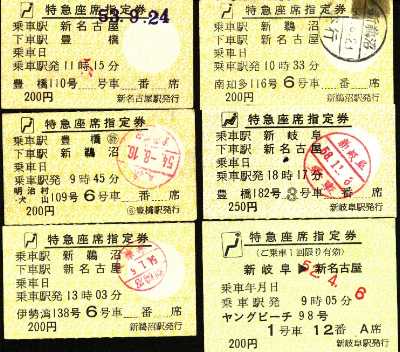 特急座席指定券
53.9.24
乗車駅 新名古屋
下車駅 豊橋
乗車日
乗車駅発 11時15分
豊橋110号 号車 番 席
200円 新名古屋駅発行
特急座席指定券
乗車駅 新鵜沼
下車駅 新名古屋
乗車日
乗車駅発 10時33分
南知多116号 6号車 番 席
200円 新鵜沼駅発行
特急座席指定券
乗車駅 豊橋
下車駅 新鵜沼
乗車日
54.-8.10
乗車駅発 9時45分
明治村
犬山 109号 6号車 番 席
200円 豊橋駅発行
特急座席指定券
乗車駅 新岐阜
下車駅 新名古屋
乗車日
新岐阜
58.11.
乗車駅発 18時17分
豊橋182号 3号車 番 席
250円 新岐阜駅発行
特急座席指定券
乗車駅 新鵜沼
下車駅 新名古屋
乗車日
乗車駅発 13時03分
伊勢湾138号 6号車 番 席
200円 新鵜沼駅発行
特急座席指定券
(ご乗車1回限り有効)
新岐阜▶新名古屋
52.4.6
乗車年月日
乗車駅発 9時05分
ヤングビーチ 98号
1号車 12番 A席
200円 新岐阜駅発行